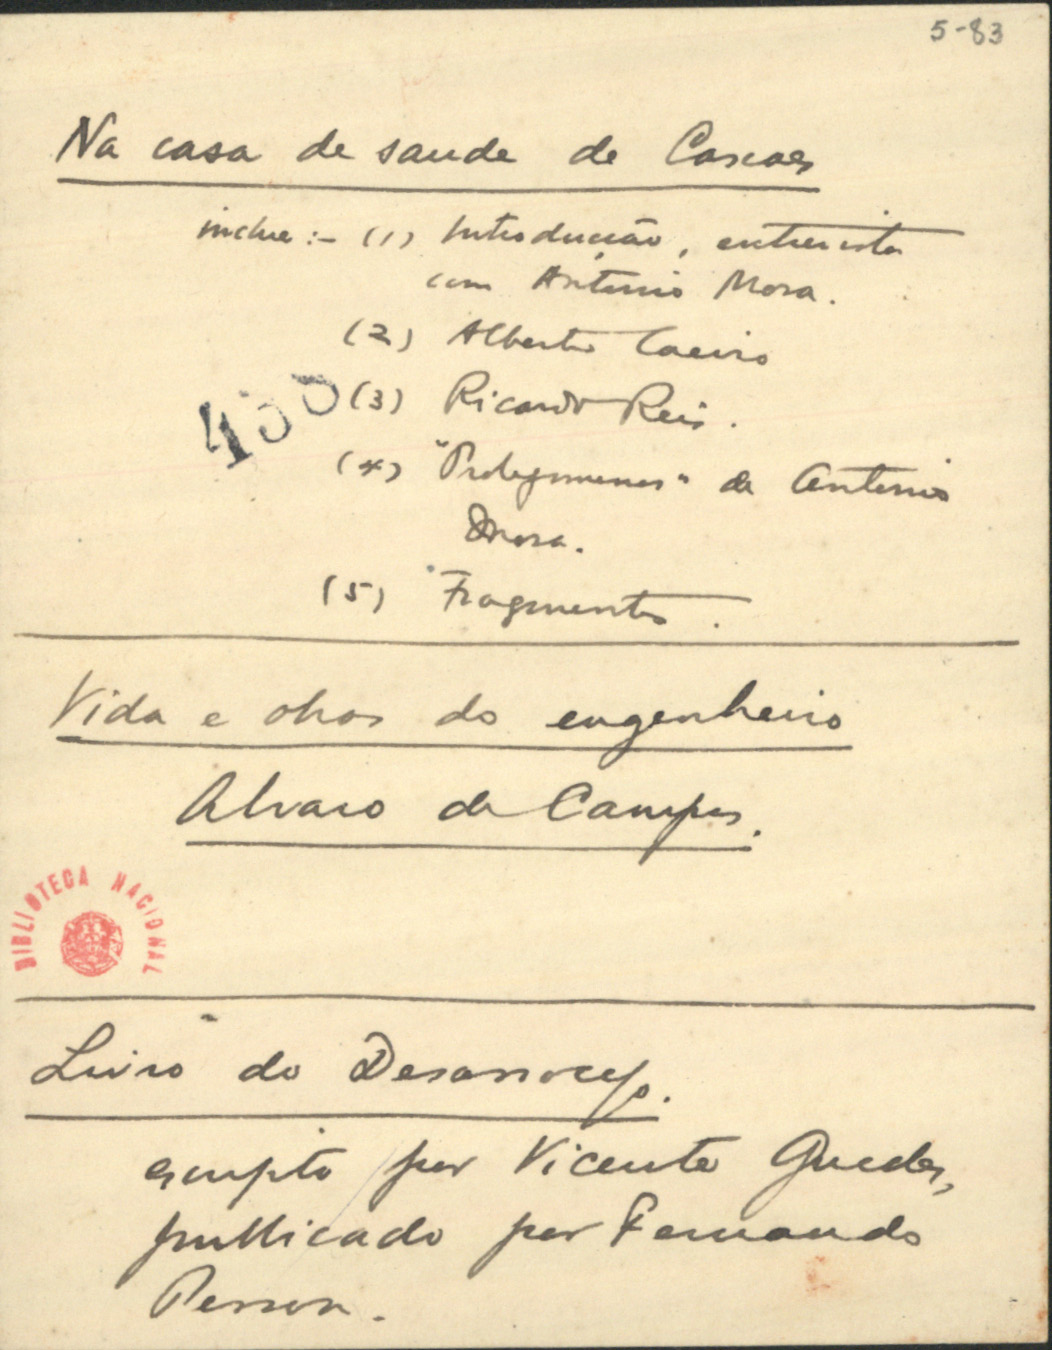 5-83
Na casa de saude de Cascaes
inclue:- (1) Introducção, entrevista
com Antonio Mora.
(2) Alberto Caeiro
(3) Ricardo Reis.
(4) "Prolegomenos" de Antonio
Mora.
(5) Fragmentos.
Vida e obras do engenheiro
Alvaro de Campos.
BIBLIOTECA NACIONAL
Livro do Desasocego.
escripto por Vicente Guedes,
publicado por Fernando
Pessoa.